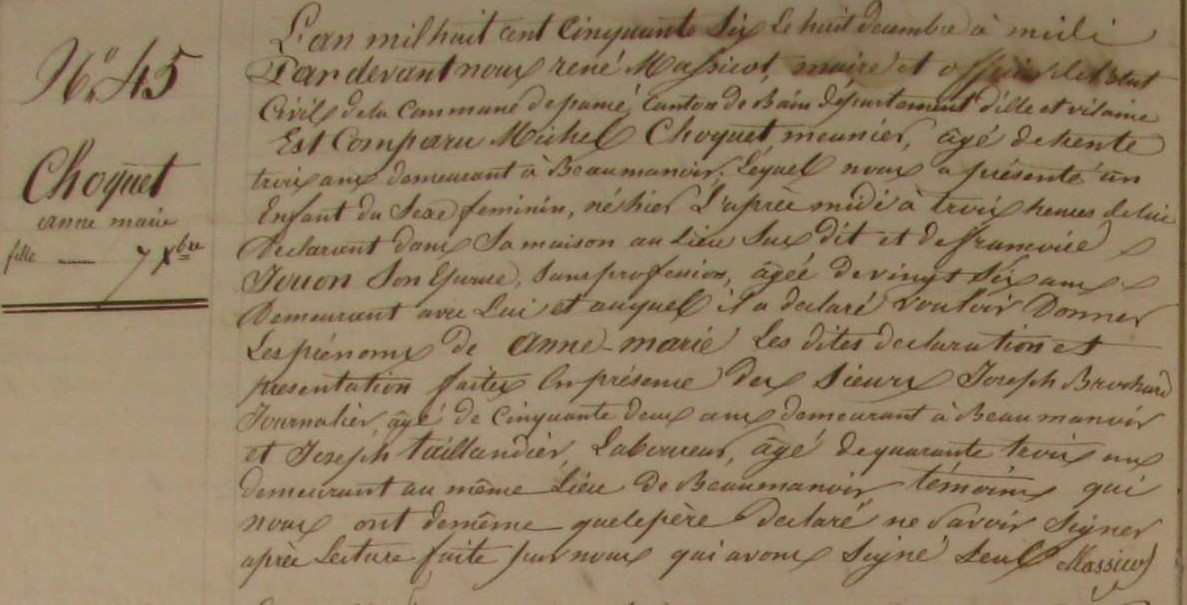 N.º 45
Choquet
anne marie
fille — 7 Xbre
L'an mil huit cent Cinquante Six Le huit decembre à midi
Pardevant nous rené Massicot, maire et officier de l'état
Civil de la Commune de pancé, Canton de Bain département d'ille et vilaine
Est Comparu Michel Choquet, meunier, âgé de trente
trois ans demeurant à Beaumanoir. Lequel nous a présenté un
Enfant du Sexe feminin, né hier L'après midi à trois heures, de lui
Déclarant dans Sa maison au Lieu Sus dit et de francoise
Son Epouse, Sans profession, âgée de vingt Six ans
Demeurant avec Lui et auquel il a declaré vouloir Donner
Les prénoms de anne-marie Les dites declaration et
presentation faites En présence des Sieurs Joseph Brochard
Journalier, âgé de Cinquante deux ans demeurant à Beaumanoir
et Joseph taillandier, Laboureur, âgé de quarante trois ans
demeurant au même Lieu de Beaumanoir, témoins qui
nous ont de même que le père declaré ne Savoir Signer
après Lecture faite par nous qui avons Signé Seul Massicot